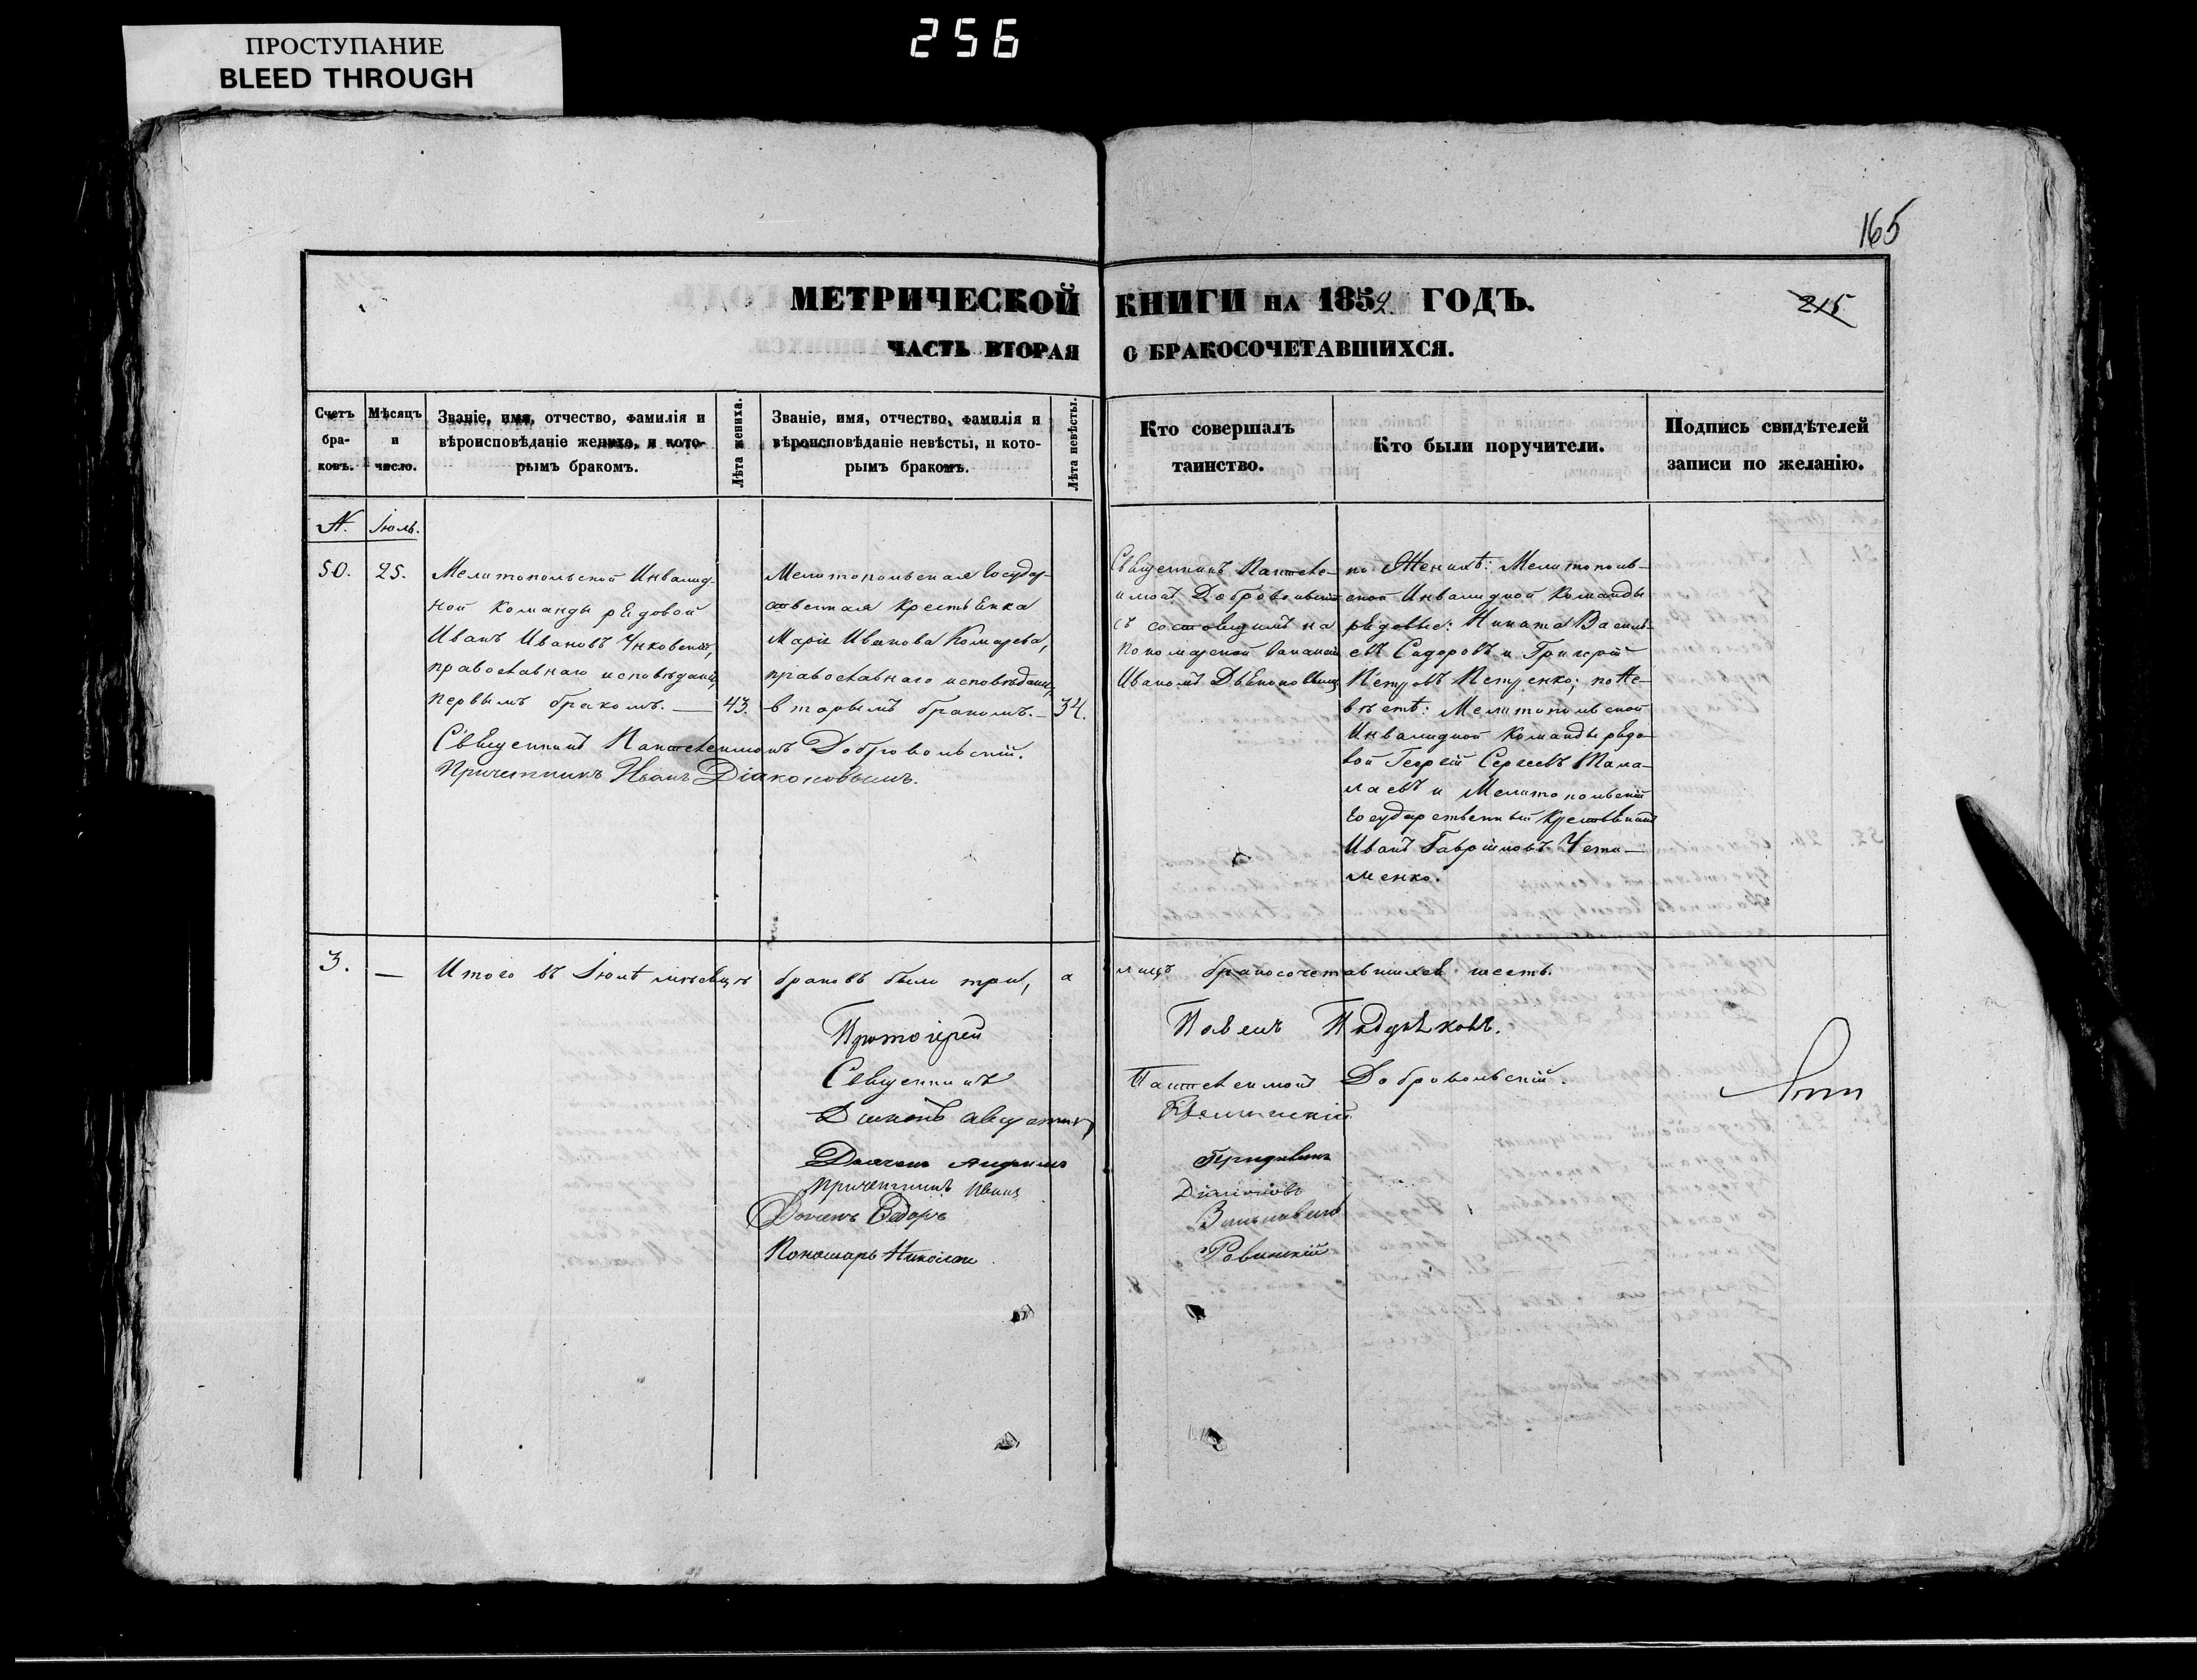 ПРОСТУПАНИЕ
BLEED THROUGH
256
165
МЕТРИЧЕСКОЙ КНИГИ НА 1852 ГОДЪ.
215
ЧАСТЬ ВТОРАЯ О БРАКОСОЧЕТАВШИХСЯ.
Счетъ бра-ковъ.
Мѣсяцъ и число.
Званіе, имя, отчество, фамилія и
вѣроисповѣданіе жениха, и кото-
рымъ бракомъ.
Лѣта жениха.
Званіе, имя, отчество, фамилія и
вѣроисповѣданіе невѣсты, и кото-
рымъ бракомъ.
Лѣта невѣсты.
Кто совершалъ
таинство.
Кто были поручители.
Подпись свидѣтелей
записи по желанію.
№. Іюль.
50. 25.
Мелитопольской Инвалид-
ной команды рядовой
Иванъ Ивановъ
православнаго исповѣданія,
первымъ бракомъ. — 43.
Мелитопольская Государ-
ственная крестьянка
Марія Иванова Комарева,
православнаго исповѣданія,
вторымъ бракомъ. — 34.
Священникъ Пантеле-
имонъ Добровольскій
съ состоящимъ на
пономарской вакансіи
Иваномъ Дьяконовымъ
по Женихѣ: Мелитополь-
ской Инвалидной Команды
рядовые: Никита Василь-
евъ Сидоровъ и Григорій
Петровъ Петренко; по Не-
вѣстѣ: Мелитопольской
Инвалидной Команды рядо-
вой Георгій Сергеевъ Мала-
лаевъ и Мелитопольскій
Государственный крестьянинъ
Иванъ Гавріиловъ
менко.
Священникъ Пантелеимонъ Добровольскій.
Причетникъ Иванъ Діаконовымъ.
3. — Итого въ Іюлѣ мѣсяцѣ браковъ было три, а лицъ бракосочетавшихся шесть.
Протоіерей Павелъ
Священникъ Пантелеимонъ Добровольскій.
Діаконъ
Дьяконъ
Причетникъ Иванъ Діаконовъ
Дьячекъ Ѳедоръ
Пономарь Николай Ровинскій